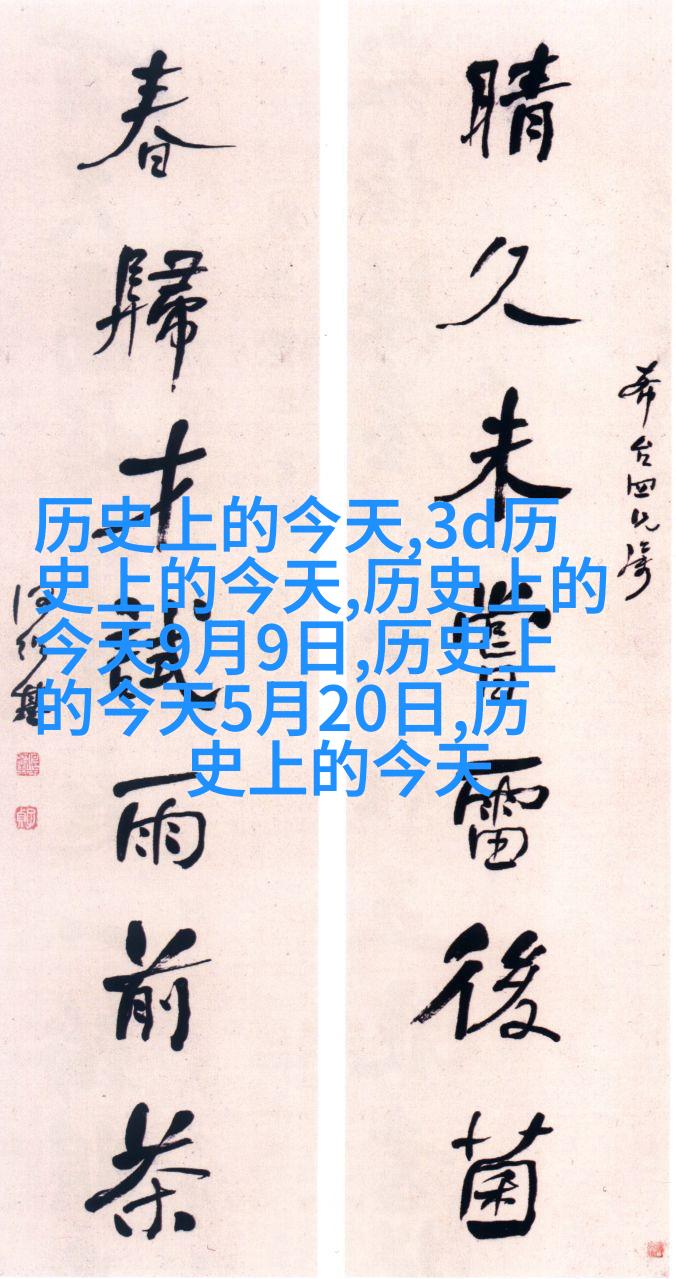 晴久未嘗雷後菌
台四兄
春歸才試雨前茶
何紹基
历史上的今天,3d历
史上的今天,历史上的
今天9月9日,历史上
的今天5月20日,历
史上的今天